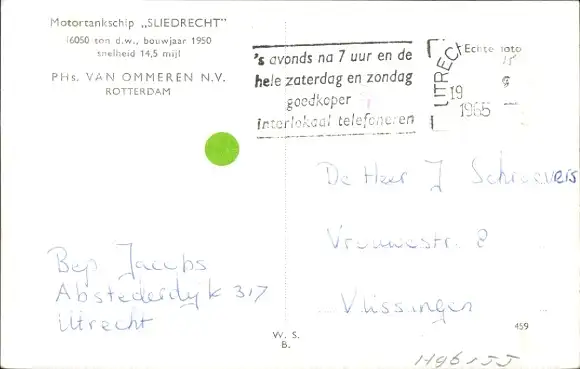 Motortankschip „SLIEDRECHT"
16050 ton d.w., bouwjaar 1950
snelheid 14,5 mijl
PHs. VAN OMMEREN N.V.
ROTTERDAM
's avonds na 7 uur en de
hele zaterdag en zondag
goedkoper
interlokaal telefoneren
UTRECHT
19
1965
Echte foto
De Heer J Schroevers
Vrouwestr. 2
Vlissingen
Bep Jacobs
Abstederdijk 317
Utrecht
W. S.
B.
459
H96-55